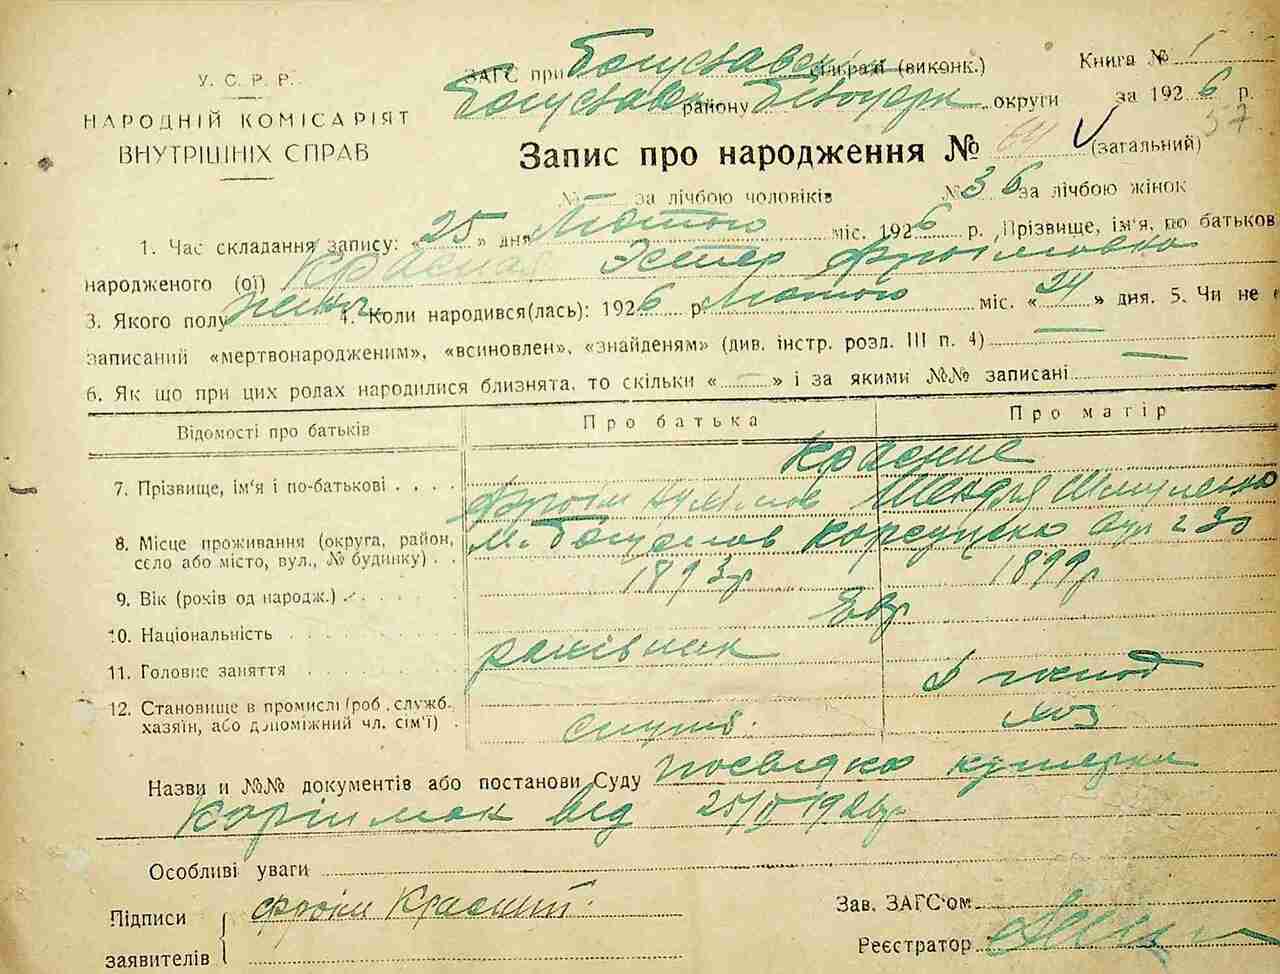 У. С. Р. Р.
НАРОДНІЙ КОМІСАРІЯТ
ВНУТРІШНІХ СПРАВ
ЗАГС при Богуславськ сільраді (виконк.) Книга № 1
Богуславськ району Білоцерк округи за 1926 р.
Запис про народження № 64 (загальний) 37
№ за лічбою чоловіків № 36 за лічбою жінок
1. Час складання запису: «25» дня Лютого міс. 1926 р. Прізвище, ім'я, по батьков
народженого (ої) Красная Эстер Фроїмовна
3. Якого полу жіноч 4. Коли народився(лась): 1926 р. лютого міс. «24» дня. 5. Чи не є
записаний «мертвонародженим», «всиновлен», «знайденям» (див. інстр. розд. III п. 4) —
6. Як що при цих родах народилися близнята, то скільки « — » і за якими №№ записані —
Відомості про батьків Про батька Про матір
Красние
7. Прізвище, ім'я і по-батькові
Фроїм Шендля
8. Місце проживання (округа, район, м. Богуслав Корсунська вул 2 30
село або місто, вул., № будинку)
9. Вік (років од народж.) 1893 р 1899 р
10. Національність Евр
11. Головне заняття
господ
12. Становище в промислі (роб., служб.,
хазяїн, або допоміжний чл. сім'ї)
Назви и №№ документів або постанови Суду посвідка
від 25/II 1926 р
Особливі уваги
Підписи Фроїм Красний Зав. ЗАГС'ом
заявителів Реєстратор